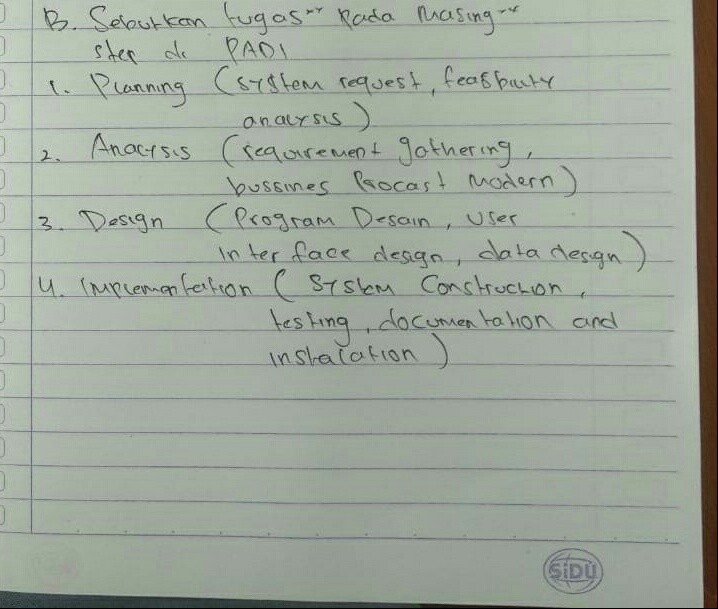 B. Sebutkan tugas" pada Masing"
step di PADI
1. Planning (system request, feasbility
analysis)
2. Analysis (requirement gathering,
bussines Procast Modern)
3. Design (Program Desain, user
interface design, data design)
4. Implementation (System Construction,
testing, documentation and
instalation)
SiDU